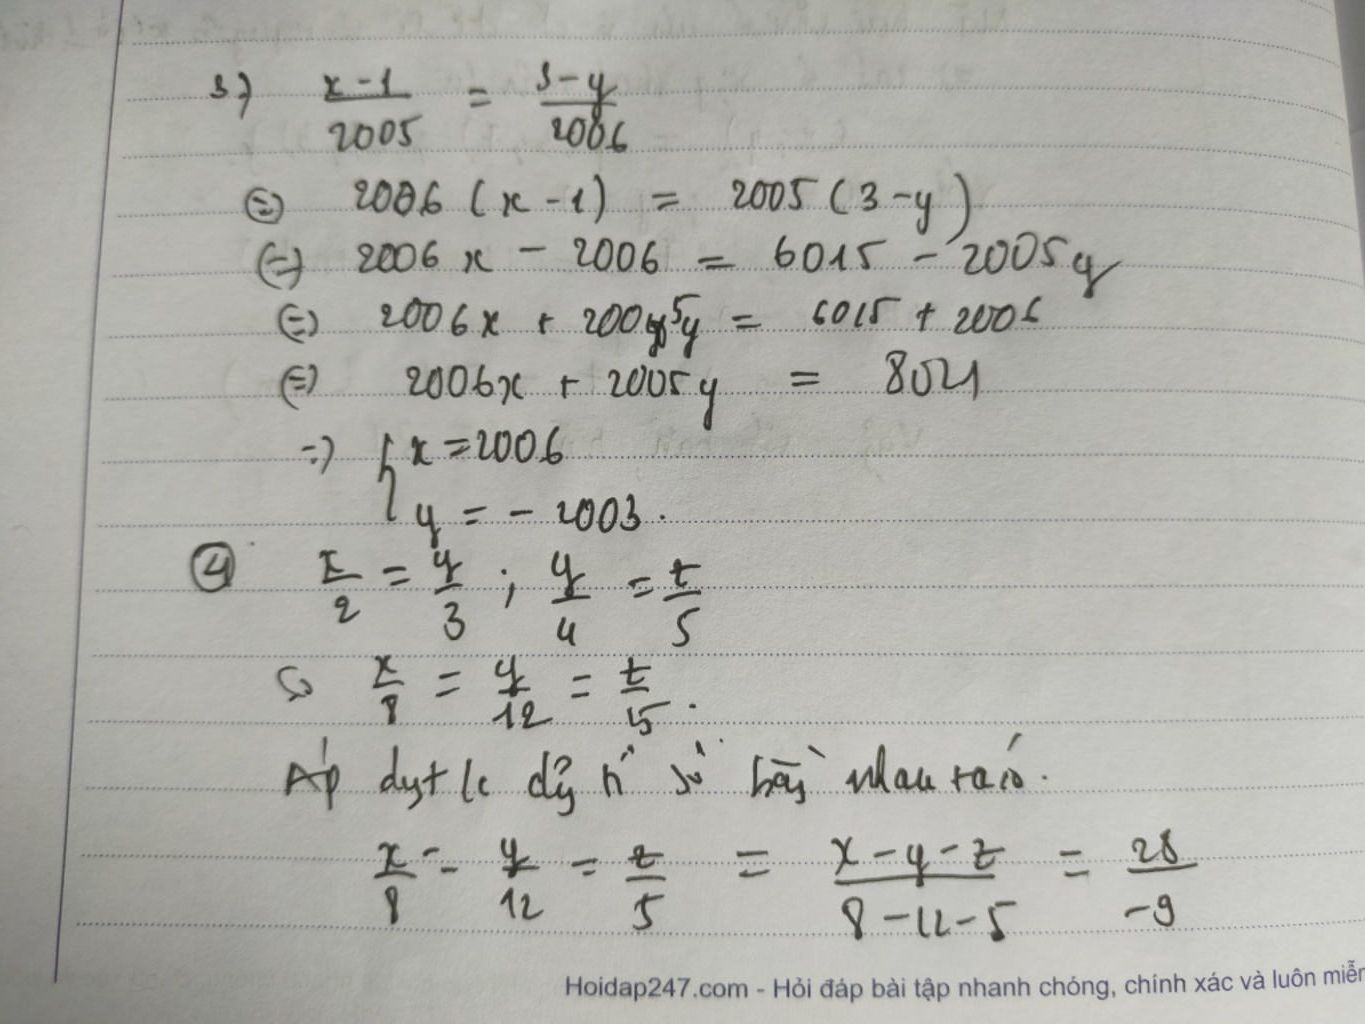 3) x-1/2005 = 3-y/2006
(=) 2006 (x-1) = 2005 (3-y)
(=) 2006x - 2006 = 6015 - 2005y
(=) 2006x + 2005y = 6015 + 2006
(=) 2006x + 2005y = 8021
=) { x = 2006
y = - 2003.
④ x/2 = y/3 ; y/4 = z/5
x/8 = y/12 = z/15.
Áp dụng t/c dãy tỉ số bằng nhau ta có.
x/8 = y/12 = z/5 = x-y-z/8-12-5 = 28/-9
Hoidap247.com - Hỏi đáp bài tập nhanh chóng, chính xác và luôn miễn